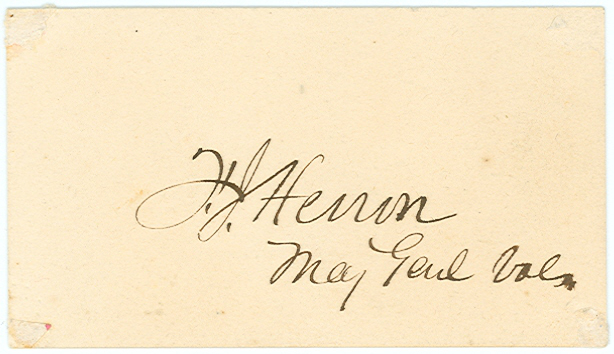 F.J. Herron
Maj Genl Vols